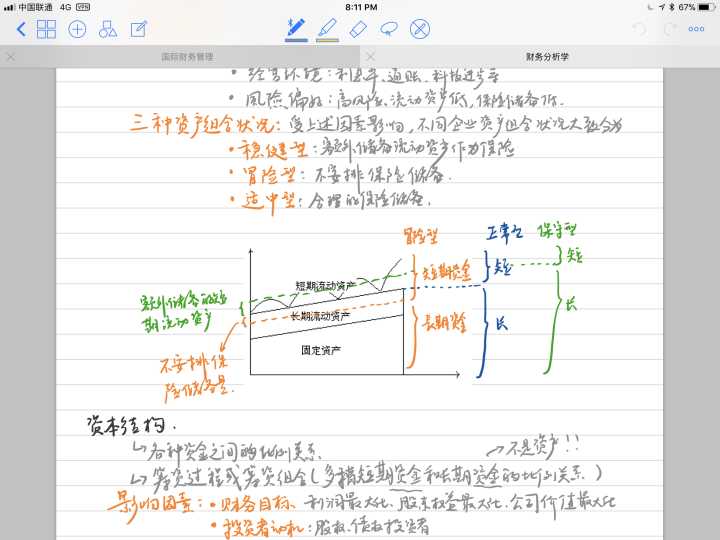 中国联通 4G VPN 8:11 PM 67%
国际财务管理 财务分析学
• 经营环境：利息率、通账、科技进步等
• 风险偏好：高风险、流动资产低，保险储备低．
三种资产组合状况：受上述因素影响，不同企业资产组合状况大致分为
• 稳健型：额外储备流动资产作为保险
• 冒险型：不安排保险储备．
• 适中型：合理的保险储备．
冒险型 正常型 保守型
短期资金 短 短
长期资金 长 长
额外储备的短
期流动资产
不安排保
险储备量．
短期流动资产
长期流动资产
固定资产
资本结构．
↳ 各种资金之间的比例关系．
→不是资产!!
↳ 筹资过程或筹资组合（多指短期资金和长期资金的比例关系．）
影响因素：• 财务目标、利润最大化、股东权益最大化、公司价值最大化
• 投资者动机：股权、债权投资者